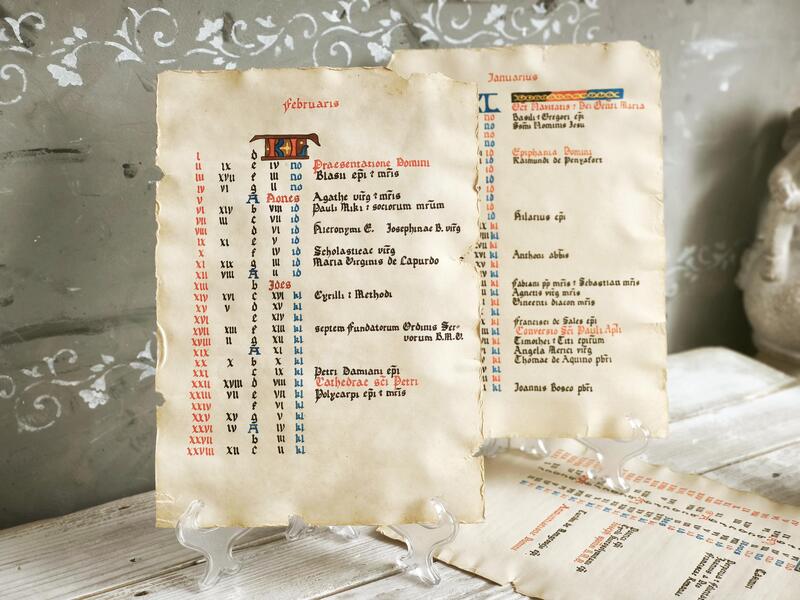 Februaris
KL
I d
II IX e IV no Praesentatione Domini
III XVII f III no Blasii epi ⁊ mris
IV VI g II no
V A Nones Agathe virg ⁊ mris
VI XIV b VIII id Pauli Miki ⁊ sociorum mrum
VII III c VII id
VIII d VI id Hieronymi E. Josephinae B. virg
IX XI e V id
X f IV id Scholasticae virg
XI XIX g III id Maria Virginis de Lapurdo
XII VIII A II id
XIII b Ides
XIV XVI c XVI kl Cyrilli ⁊ Methodi
XV V d XV kl
XVI e XIV kl
XVII XIII f XIII kl septem Fundatorum Ordinis Ser-
XVIII II g XII kl vorum B.M.V.
XIX A XI kl
XX X b X kl
XXI c IX kl Petri Damiani epi
XXII XVIII d VIII kl Cathedrae sci Petri
XXIII VII e VII kl Polycarpi epi ⁊ mris
XXIV f VI kl
XXV XV g V kl
XXVI IV A IV kl
XXVII b III kl
XXVIII XII c II kl
Januarius
L
Oct Navitatis ⁊ Dei Genit Maria
no Basili ⁊ Gregori epi
no Ssmi Nominis Iesu
no
Epiphania Domini
id Raimundi de Penyafort
id
id
id
id
Hilarius epi
kl
kl
kl
kl Anthoni abbis
kl
kl
kl Fabiani pp mris ⁊ Sebastian mris
kl Agnetis virg mris
kl Vincenti diacon mris
kl
kl Francisci de Sales epi
kl Conversio Sci Pauli Apli
kl Timothei ⁊ Titi epirum
kl Angela Merici virg
kl Thomae de Aquino pbri
kl
kl
kl Joannis Bosco pbri